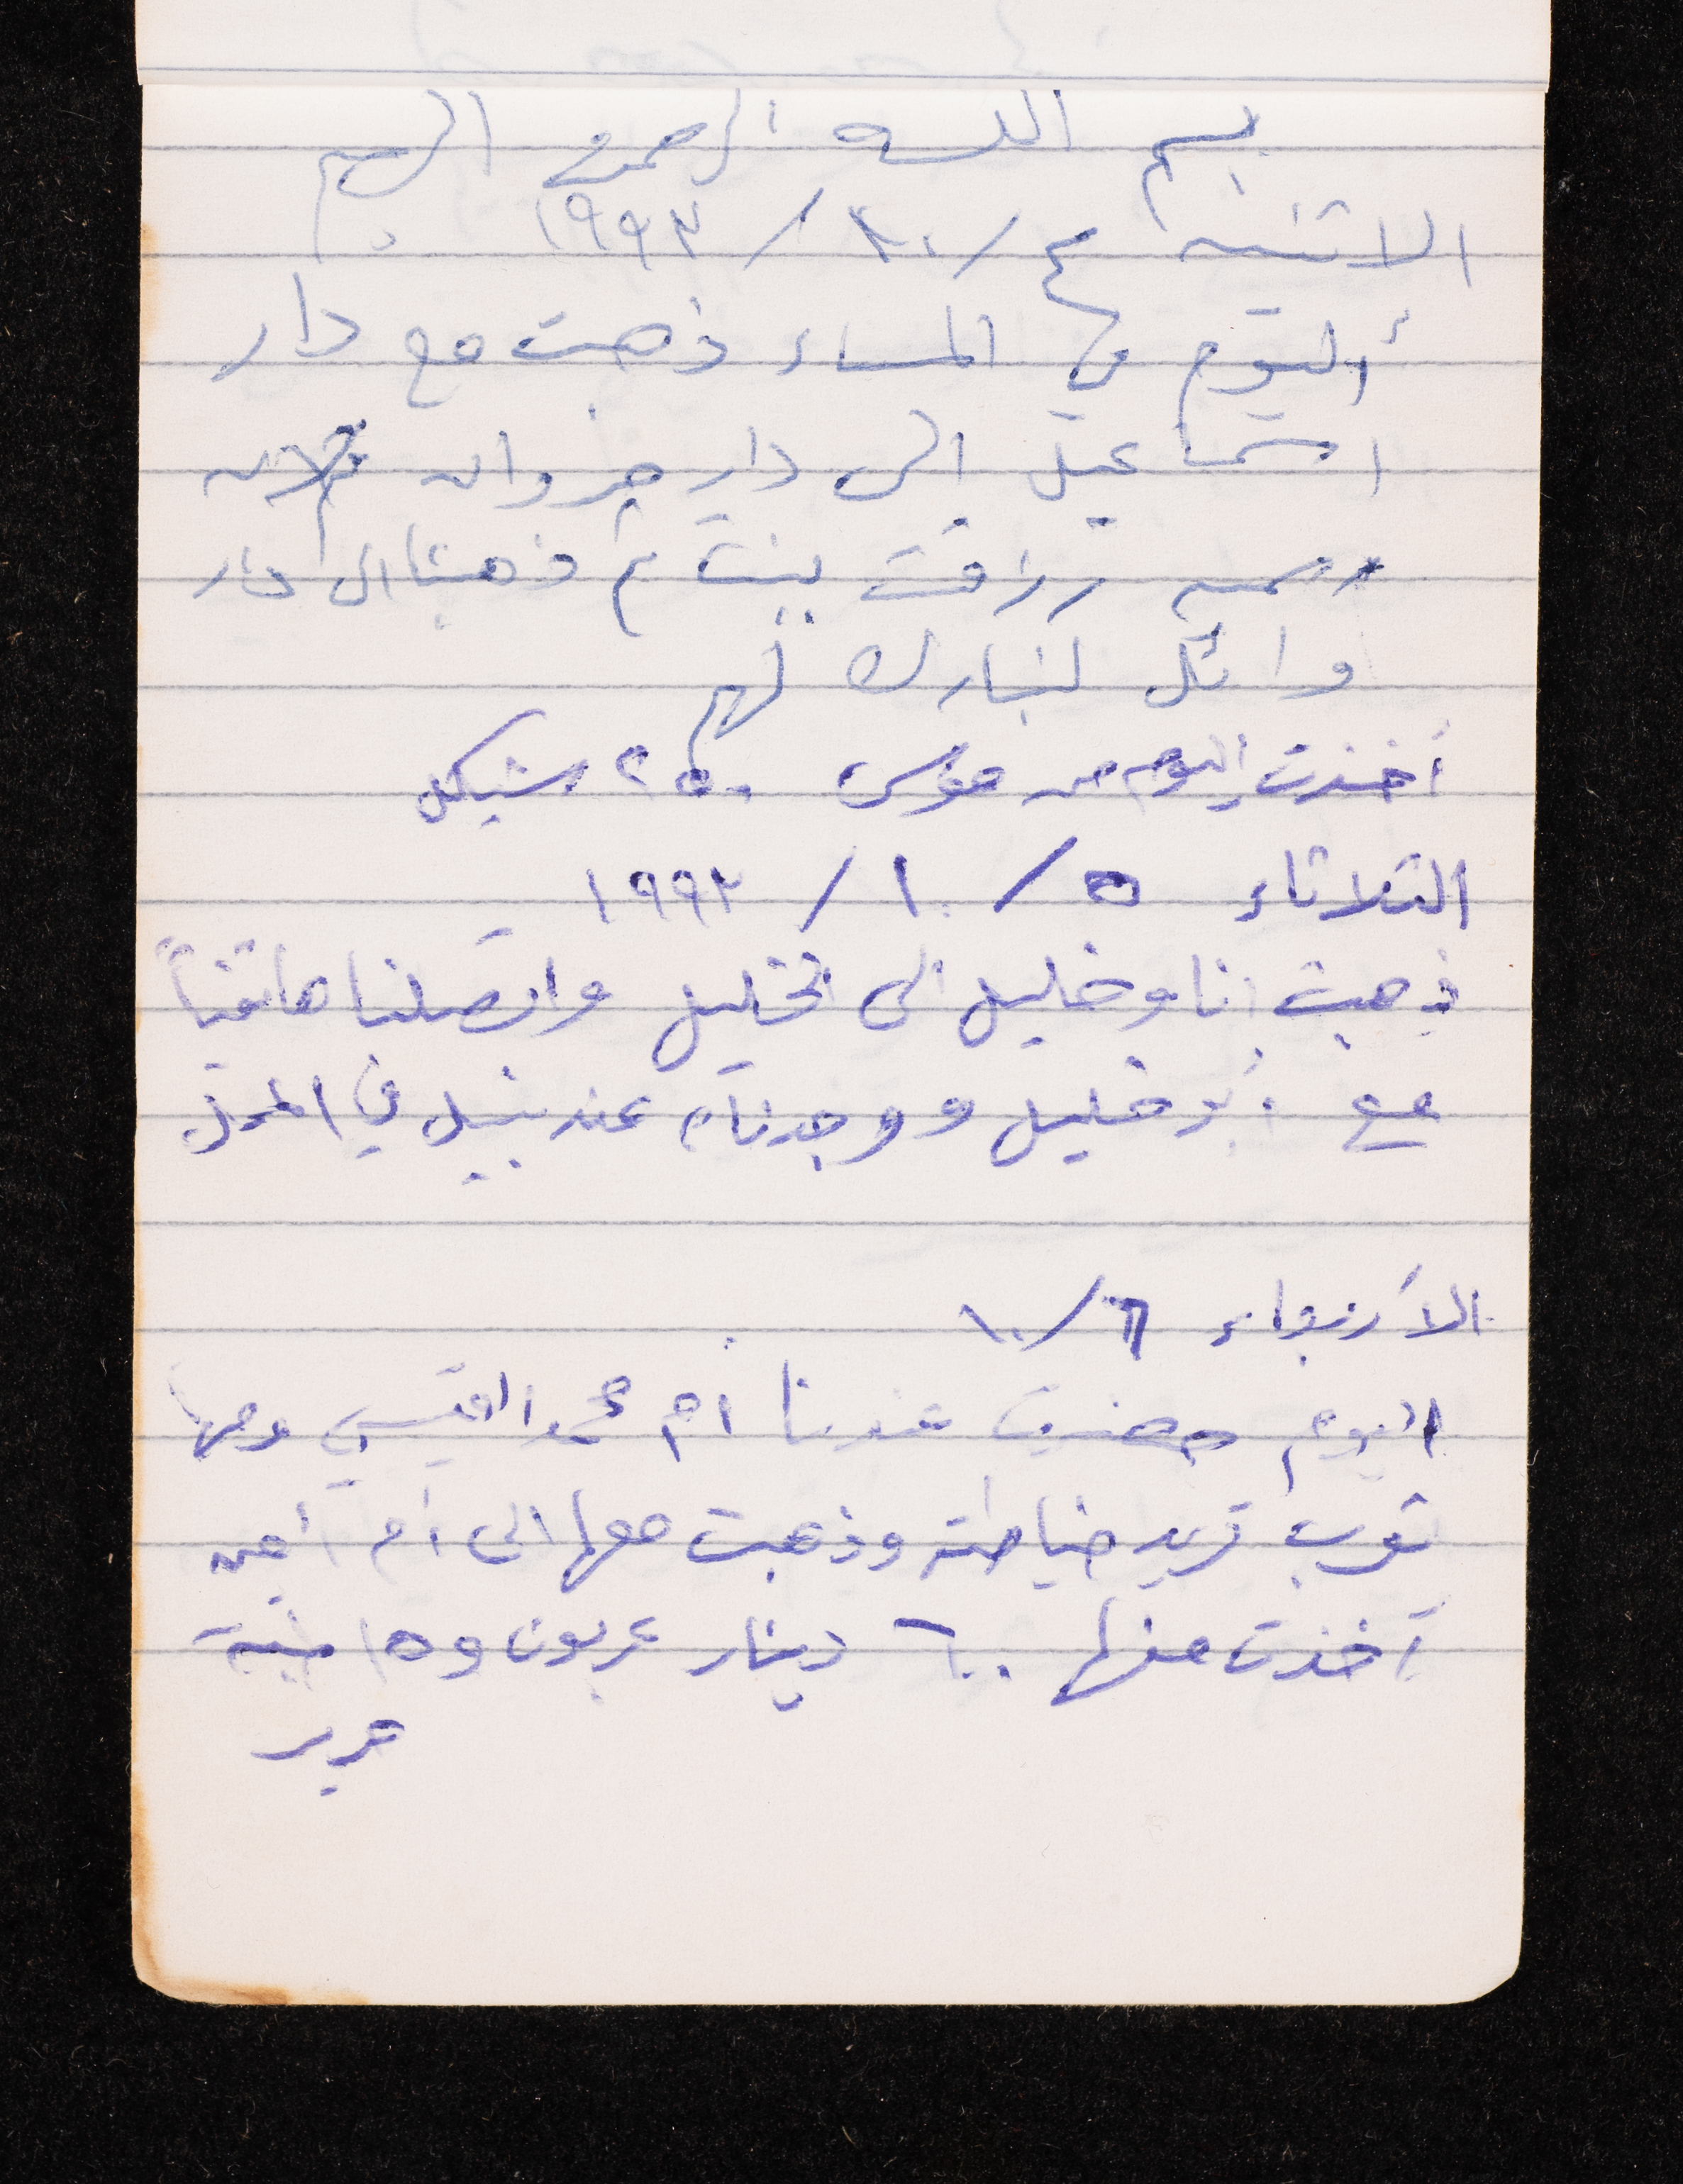 بسم الله الرحمن الرحيم
الاثنين ٤/١٠/١٩٩٣
أليوم في المساء ذهبت مع دار
اسماعيل الى دار مروان لان
رزقت بنت ثم ذهبنا الى دار
وائل لنبارك لهم
أخذت اليوم من موسى ٢٥٠ شيكل
الثلاثاء ٥/١٠/١٩٩٣
ذهبت انا وخليل الى الخليل واتصلنا هاتفياً
مع أبو خليل ووجدناه عند نبيل في المحل
الأربعاء ٦/١٠
اليوم حضرت عندنا ام محمد القيسي ومعها
ثوب تريد خياطته وذهبت معها الى أم أيمن
أخذت منها ٦٠٠ دينار عربون و١٥
حرير